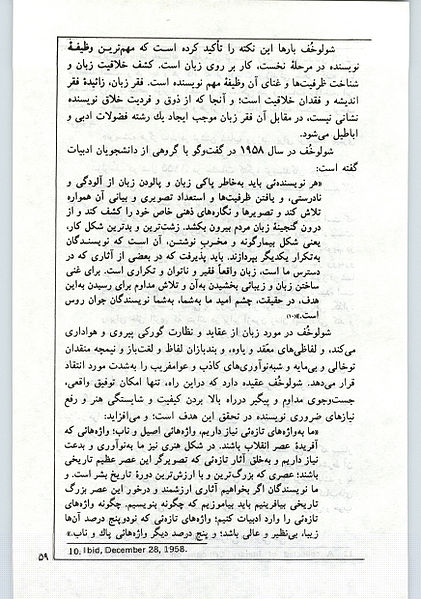 شولوخُف بارها این نکته را تأکید کرده است که مهم‌ترین وظیفهٔ
نویسنده در مرحلهٔ نخست، کار بر روی زبان است. کشف خلاقیت زبان و
شناخت ظرفیت‌ها و غنای آن وظیفهٔ مهم نویسنده است. فقر زبان، زائیدهٔ فقر
اندیشه و فقدان خلاقیت است؛ و آنجا که از ذوق و فردیت خلاق نویسنده
نشانی نیست، در مقابل آن فقر زبان موجب ایجاد یك رشته فضولات ادبی و
اباطیل می‌شود.
شولوخُف در سال ۱۹۵۸ در گفت‌وگو با گروهی از دانشجویان ادبیات
گفته است:
«هر نویسنده‌ئی باید به‌خاطر پاکی زبان و پالودن زبان از آلودگی و
نادرستی، و یافتن ظرفیت‌ها و استعداد تصویری و بیانی آن همواره
تلاش کند و تصویرها و نگاره‌های ذهنی خاص خود را کشف کند و از
درون گنجینهٔ زبان مردم بیرون بکشد. زشت‌ترین و بدترین شکل کار،
یعنی شکل بیمارگونه و مخرب نوشتن، آن است که نویسندگان
به‌تکرار یکدیگر بپردازند. باید پذیرفت که در بعضی از آثاری که در
دسترس ما است، زبان واقعاً فقیر و ناتوان و تکراری است. برای غنی
ساختن زبان و زیبائی بخشیدن به‌آن و تلاش مداوم برای رسیدن به‌این
هدف، در حقیقت، چشم امید ما به‌شما، به‌شما نویسندگان جوان روس
است.»(۱۰)
شولوخُف در مورد زبان از عقاید و نظارت گورکی پیروی و هواداری
می‌کند، و لفاظی‌های معّقد و یاوه، و بندبازان لفاظ و لغت‌باز و نیمچه منقدان
توخالی و بی‌مایه و شبه‌نوآوری‌های کاذب و عوامفریب را به‌شدت مورد انتقاد
قرار می‌دهد. شولوخُف عقیده دارد که دراین راه، تنها امکان توفیق واقعی،
جست‌وجوی مداوم و پیگیر درراه بالا بردن کیفیت و شایستگی هنر و رفع
نیازهای ضروری نویسنده در تحقق این هدف است؛ و می‌افزاید:
«ما به‌واژه‌های تازه‌ئی نیاز داریم، واژه‌هائی اصیل و ناب؛ واژه‌هائی که
آفریدهٔ عصر انقلاب باشند. در شکل هنری نیز ما به‌نوآوری و بدعت
نیاز داریم و به‌خلق آثار تازه‌ئی که تصویرگر این عصر عظیم تاریخی
باشند؛ عصری که بزرگ‌ترین و با ارزش‌ترین دورهٔ تاریخ بشر است. و
ما نویسندگان اگر بخواهیم آثاری ارزشمند و درخور این عصر بزرگ
تاریخی بیافرینیم باید بیاموزیم که چگونه بنویسیم. چگونه واژه‌های
تازه‌ئی را وارد ادبیات کنیم؛ واژه‌های تازه‌ئی که نودوپنج درصد آن‌ها
زیبا، بی‌نظیر و عالی باشد؛ و پنج درصد دیگر واژه‌هائی پاك و ناب.»
10. Ibid, December 28, 1958.
۵۹